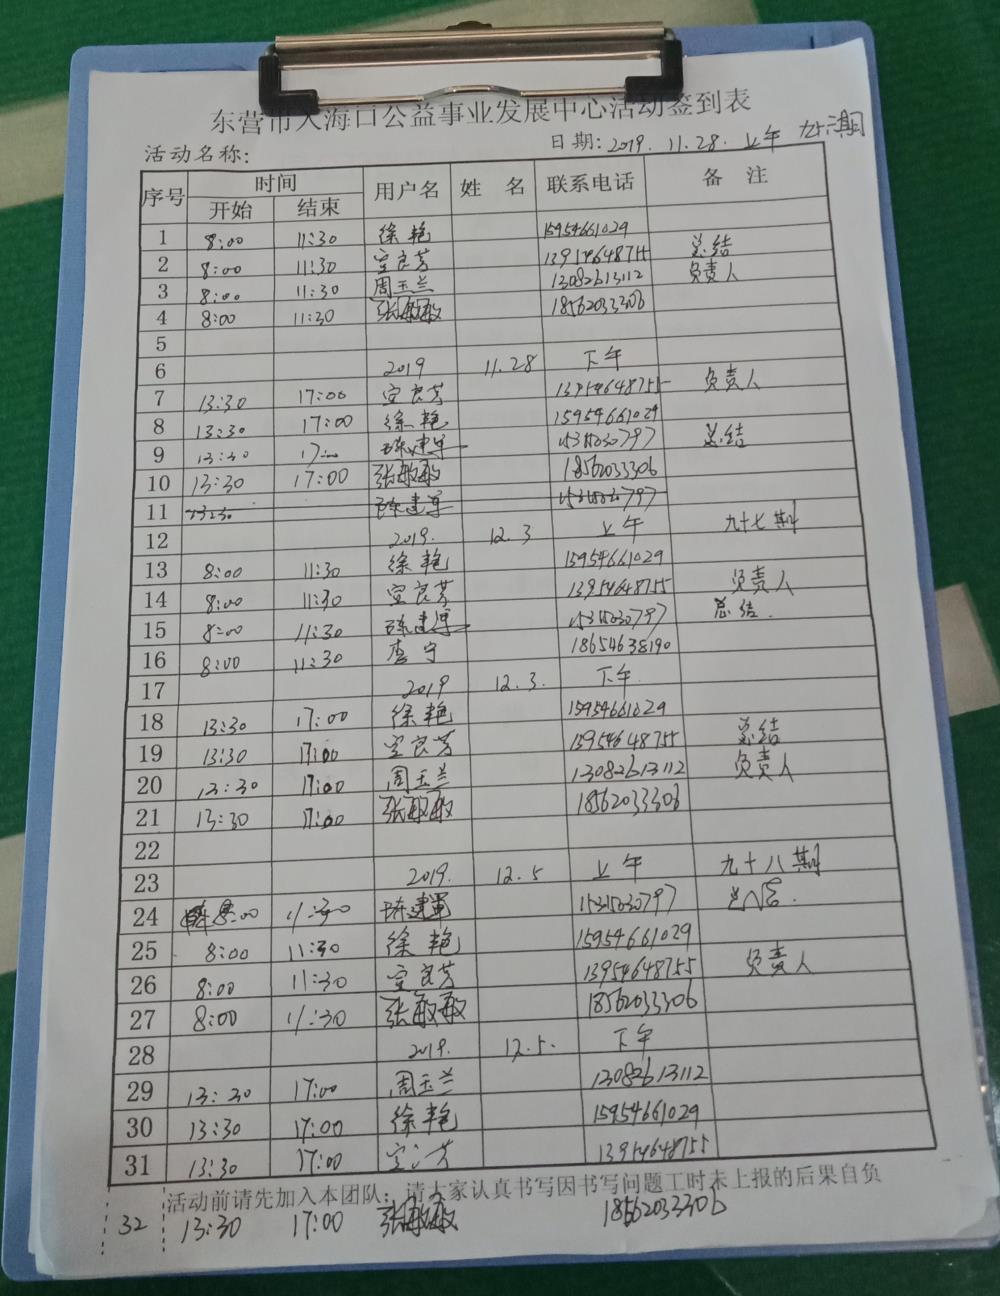 东营市入海口公益事业发展中心活动签到表
活动名称: 日期: 2019. 11.28. 上午 九十六期
序号 时间 用户名 姓 名 联系电话 备 注
开始 结束
1 8:00 11:30 徐艳 15954661029
2 8:00 11:30 宫良芳 13954648755 总结
3 8:00 11:30 周玉兰 13082613112 负责人
4 8:00 11:30 张敏敏 18562033306
5
6 2019 11.28 下午
7 13:30 17:00 宫良芳 13954648755 负责人
8 13:30 17:00 徐艳 15954661029
9 13:30 17:00 陈建军 15315030797 总结
10 13:30 17:00 张敏敏 18562033306
11 13:30 陈建军 15315030797
12 2019. 12.3 上午 九十七期
13 8:00 11:30 徐艳 15954661029
14 8:00 11:30 宫良芳 13954648755 负责人
15 8:00 11:30 陈建军 15315030797 总结.
16 8:00 11:30 李宁 18654638190
17 2019 12.3. 下午
18 13:30 17:00 徐艳 15954661029
19 13:30 17:00 宫良芳 13954648755 总结
20 13:30 17:00 周玉兰 13082613112 负责人
21 13:30 17:00 张敏敏 18562033306
22
23 2019. 12.5 上午 九十八期
24 8:00 11:30 陈建军 15315030797 总结.
25 8:00 11:30 徐艳 15954661029
26 8:00 11:30 宫良芳 13954648755 负责人
27 8:00 11:30 张敏敏 18562033306
28 2019. 12.5. 下午
29 13:30 17:00 周玉兰 13082613112
30 13:30 17:00 徐艳 15954661029
31 13:30 17:00 宫良芳 13954648755
活动前请先加入本团队; 请大家认真书写因书写问题工时未上报的后果自负
32 13:30 17:00 张敏敏 18562033306